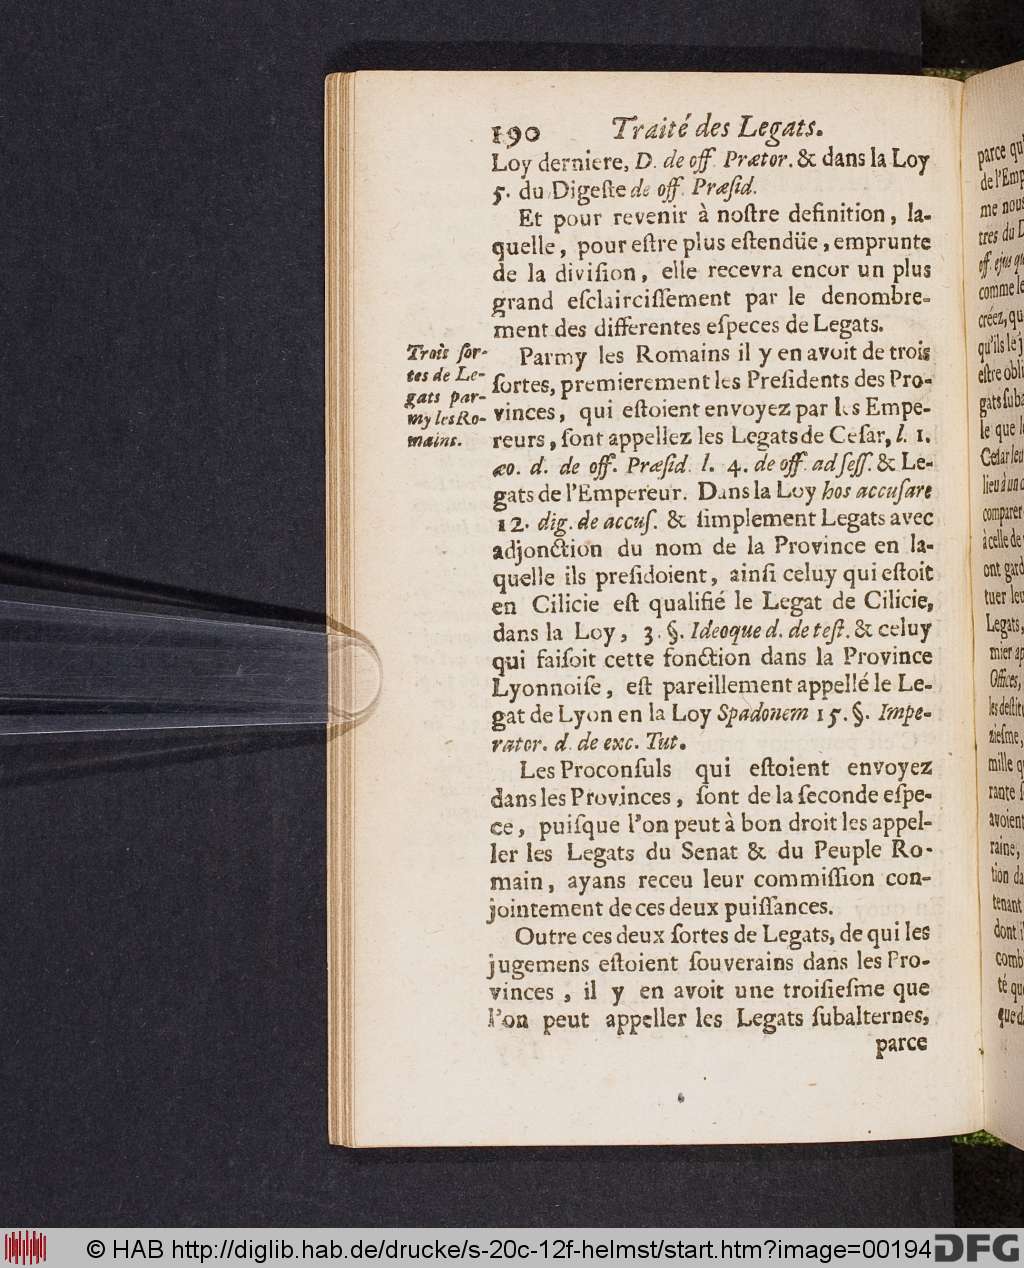 190 Traité des Legats.
Loy derniere, D. de off. Prætor. & dans la Loy
5. du Digeſte de off. Præſid.
Et pour revenir à noſtre definition, la-
quelle, pour eſtre plus eſtendüe, emprunte
de la diviſion, elle recevra encor un plus
grand eſclairciſſement par le denombre-
ment des differentes eſpeces de Legats.
Trois ſor-
tes de Le-
gats par-
my les Ro-
mains.
Parmy les Romains il y en avoit de trois
ſortes, premierement les Preſidents des Pro-
vinces, qui eſtoient envoyez par les Empe-
reurs, ſont appellez les Legats de Ceſar, l. 1.
æo. d. de off. Præſid. l. 4. de off. ad ſeſſ. & Le-
gats de l'Empereur. Dans la Loy hos accuſare
12. dig. de accuſ. & ſimplement Legats avec
adjonction du nom de la Province en la-
quelle ils preſidoient, ainſi celuy qui eſtoit
en Cilicie eſt qualifié le Legat de Cilicie,
dans la Loy, 3. §. Ideoque d. de teſt. & celuy
qui faiſoit cette fonction dans la Province
Lyonnoiſe, eſt pareillement appellé le Le-
gat de Lyon en la Loy Spadonem 15. §. Impe-
rator. d. de exc. Tut.
Les Proconſuls qui eſtoient envoyez
dans les Provinces, ſont de la ſeconde eſpe-
ce, puiſque l'on peut à bon droit les appel-
ler les Legats du Senat & du Peuple Ro-
main, ayans receu leur commiſſion con-
jointement de ces deux puiſſances.
Outre ces deux ſortes de Legats, de qui les
jugemens eſtoient ſouverains dans les Pro-
vinces, il y en avoit une troiſieſme que
l'on peut appeller les Legats ſubalternes,
parce
parce qu'
de l'Emp
me nous
tres du D
off. ejus qu
comme le
créez, qu
qu'ils le j
eſtre obli
gats ſuba
le que l
Ceſar leu
lieu à un c
comparer
à celle de
ont gard
tuer leu
Legats,
mier ap
Offices,
les deſtit
zieſme,
mille q
rante ſ
avoient
raine,
tion da
tenant
dont i
comb
té que
que d
© HAB http://diglib.hab.de/drucke/s-20c-12f-helmst/start.htm?image=00194
DFG